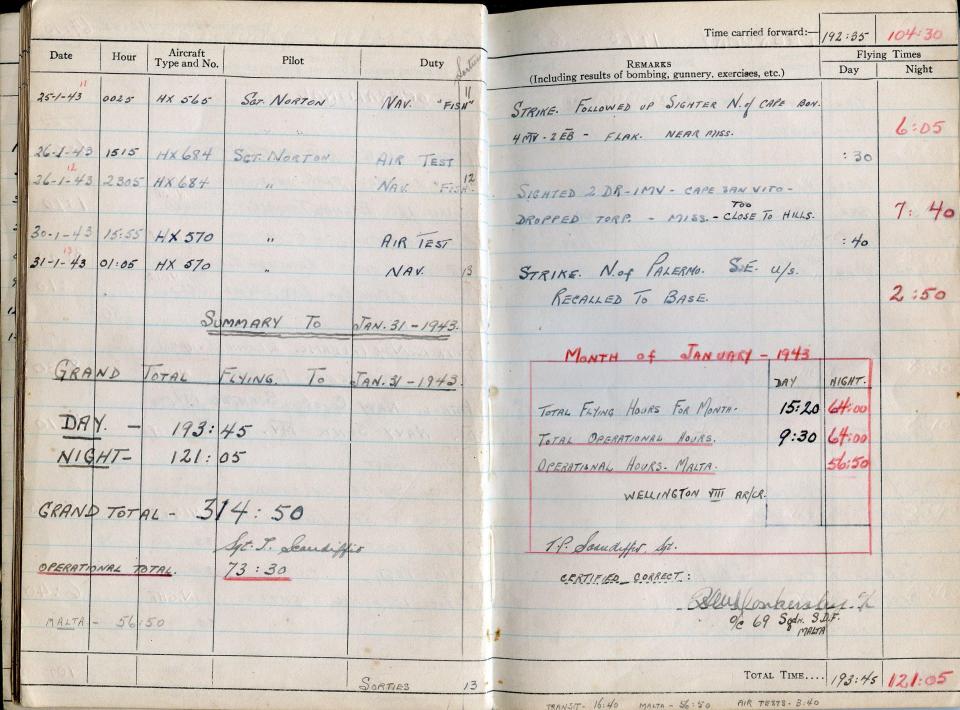 Date Hour Aircraft Type and No. Pilot Duty Sorties
11
25-1-43 0025 HX 565 Sgt. Norton Nav. "Fish" 11
26-1-43 1515 HX 684 Sgt. Norton Air Test
12
26-1-43 2305 HX 684 " Nav. "Fish" 12
30-1-43 15:55 HX 570 " Air Test
13
31-1-43 01:05 HX 570 " Nav. 13
Summary To Jan. 31 - 1943.
Grand Total Flying To Jan. 31 - 1943.
Day. - 193:45
Night - 121:05
Grand Total - 314:50
Sgt. T. Scandiffio
Operational Total. 73:30
Malta - 56:50
Sorties 13
Time carried forward:— 192:35 104:30
Remarks
(Including results of bombing, gunnery, exercises, etc.)
Flying Times
Day Night
Strike. Followed up Sighter N. of Cape Bon.
4 MV - 2 EB - Flak. Near Miss. 6:05
:30
Sighted 2 DR - 1 MV - Cape San Vito -
Dropped Torp. - Miss. - Too Close To Hills. 7:40
:40
Strike. N. of Palermo. S.E. u/s.
Recalled To Base. 2:50
Month of January - 1943
Day Night.
Total Flying Hours For Month. 15:20 64:00
Total Operational Hours. 9:30 64:00
Operational Hours - Malta. 56:50
Wellington VIII AR/LR.
T.P. Scandiffio Sgt.
Certified Correct:
o/c 69 Sqdn. S.D.F.
Malta
Total Time.... 193:45 121:05
Transit - 16:40 Malta - 56:50 Air Tests - 3:40